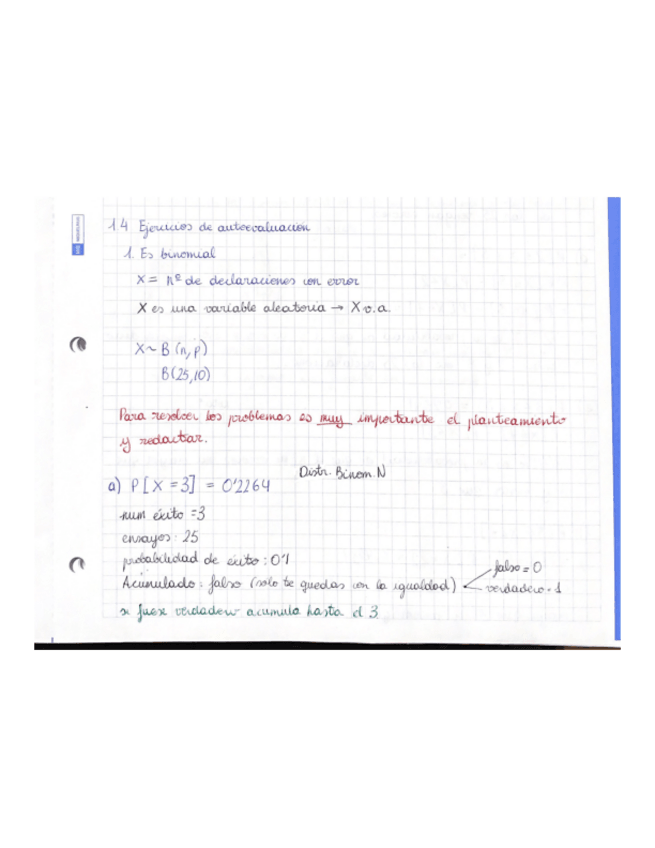 14 Ejercicios de autoevaluación
1. Es binomial
X = nº de declaraciones con error
X es una variable aleatoria → X v.a.
X ~ B (n, p)
B(25,10)
Para resolver los problemas es muy importante el planteamiento
y redactar.
Distr. Binom. N
a) P[X = 3] = 0'2264
num éxito = 3
ensayos: 25
probabilidad de éxito: 0'1
Acumulado: falso (solo te quedas con la igualdad)
falso = 0
verdadero = 1
si fuese verdadero acumula hasta el 3